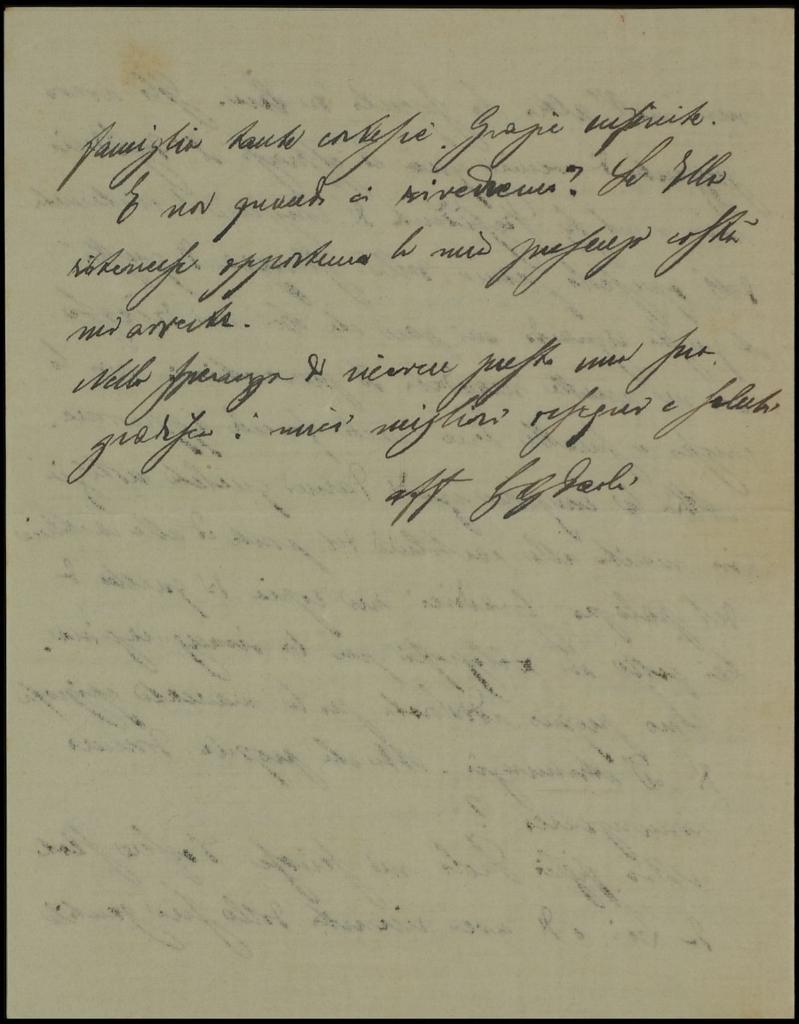 famiglia tante cortesie. Grazie infinite.
E noi quando ci rivedremo? Se Ella
ritenesse opportuna la mia presenza costà
mi avverta.
Nella speranza di ricevere presto una sua
gradisca i miei migliori ossequi e saluti
aff